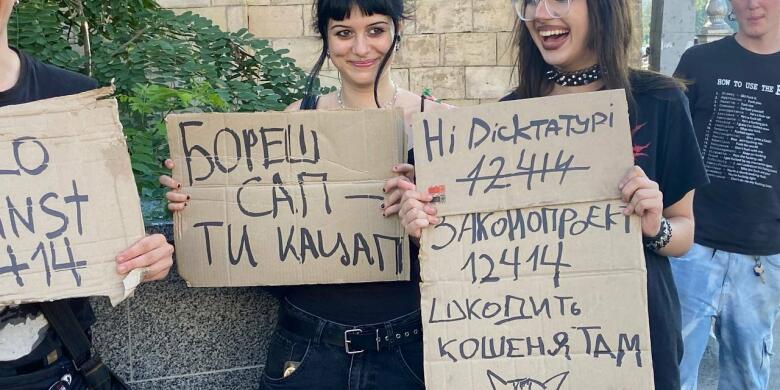 LO
INST
414
БОРЕШ
САП –
ТИ КАЦАП
НІ DICKТАТУРІ
12414
ЗАКОНОПРОЄКТ
12414
ШКОДИТЬ
КОШЕНЯТАМ
HOW TO USE THE